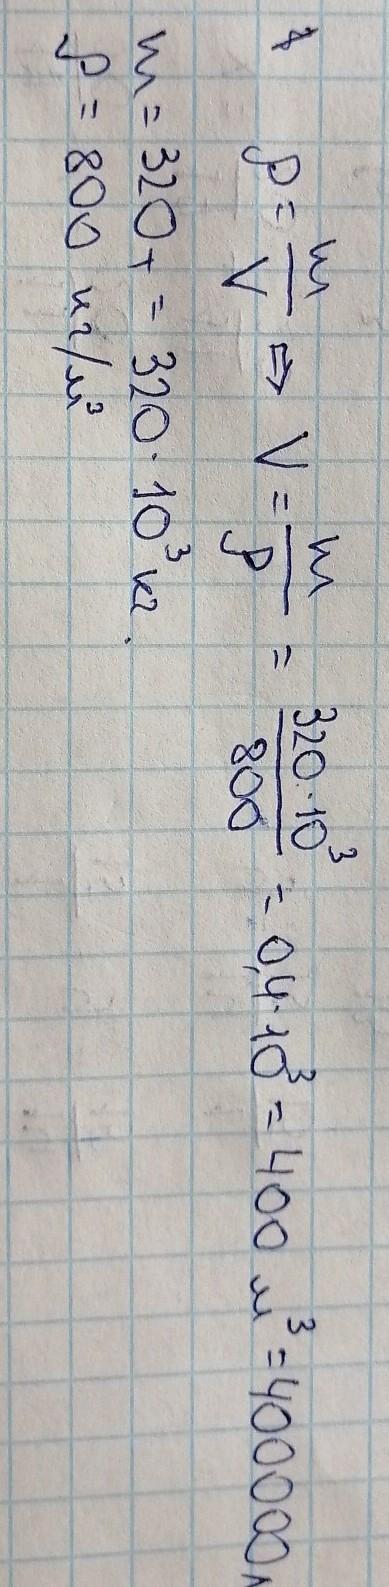 ρ = m/V ⇒ V = m/ρ = 320·10³/800 = 0,4·10³ = 400 м³ = 400000 л
m = 320 т = 320·10³ кг.
ρ = 800 кг/м³